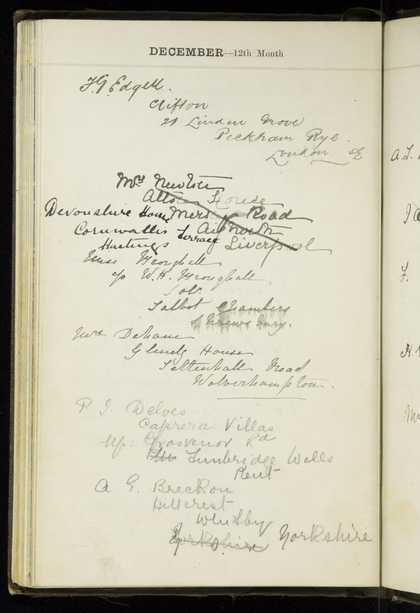 DECEMBER—12th Month
F. G. Edgett.
Clifton
21 Linden Grove
Peckham Rye
London SE
Mrs Newton
House
Devonshire House Mersey Road
Cornwallis Terrace Aigburth
Hastings Liverpool
Miss Wronghell
c/o W. H. Wronghell
Solr
Talbot Chambers
Shrewsbury.
Mrs Dehane
Glenelg House
Tettenhall Road
Wolverhampton.
P. J. Delves
Caprera Villas
Up: Grosvenor Rd
Tunbridge Wells
Kent
A G. Breckon
Hillcrest
Whitby
Yorkshire Yorkshire
A. J.
F.
H.